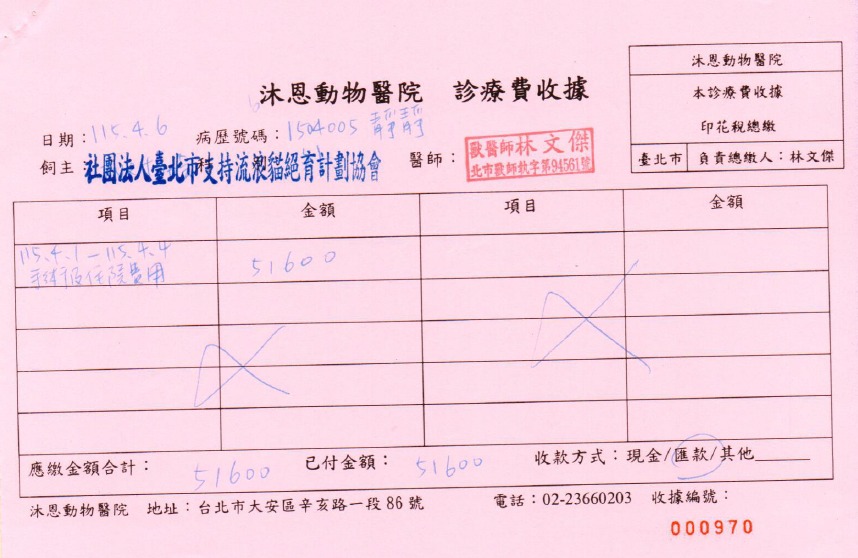 沐恩動物醫院 診療費收據
沐恩動物醫院
本診療費收據
印花稅總繳
臺北市 負責總繳人:林文傑
日期:115.4.6 病歷號碼:1504005 靜靜
飼主 社團法人臺北市支持流浪貓絕育計劃協會 醫師:
獸醫師林文傑
北市獸師執字第94561號
項目 金額 項目 金額
115.4.1-115.4.4 51600
手術及住院費用
應繳金額合計:51600 已付金額:51600 收款方式:現金/匯款/其他
沐恩動物醫院 地址:台北市大安區辛亥路一段86號 電話:02-23660203 收據編號:
000970